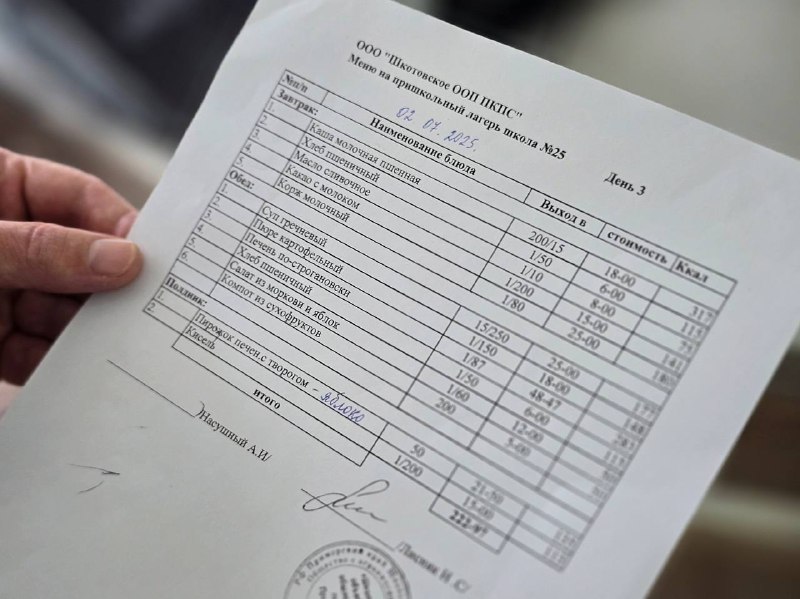 ООО "Шкотовское ООП ПКПС"
Меню на пришкольный лагерь школа №25
02 07. 2025 День 3
№п/п Наименование блюда Выход в стоимость Ккал
Завтрак:
1. Каша молочная пшенная 200/15 18-00
2. Хлеб пшеничный 1/50 6-00
3. Масло сливочное 1/10 8-00
4. Какао с молоком 1/200 15-00
5. Корж молочный 1/80 25-00
Обед:
1. Суп гречневый 15/250 25-00
2. Пюре картофельный 1/150 18-00
3. Печень по-строгановски 1/87 48-47
4. Хлеб пшеничный 1/50 6-00
5. Салат из моркови и яблок 1/60 12-00
6. Компот из сухофруктов 200 5-00
Полдник:
1. Пирожок печен.с творогом - яблоко 50 21-50
2. Кисель 1/200 15-00
итого 222-97
)Насушный А.И/